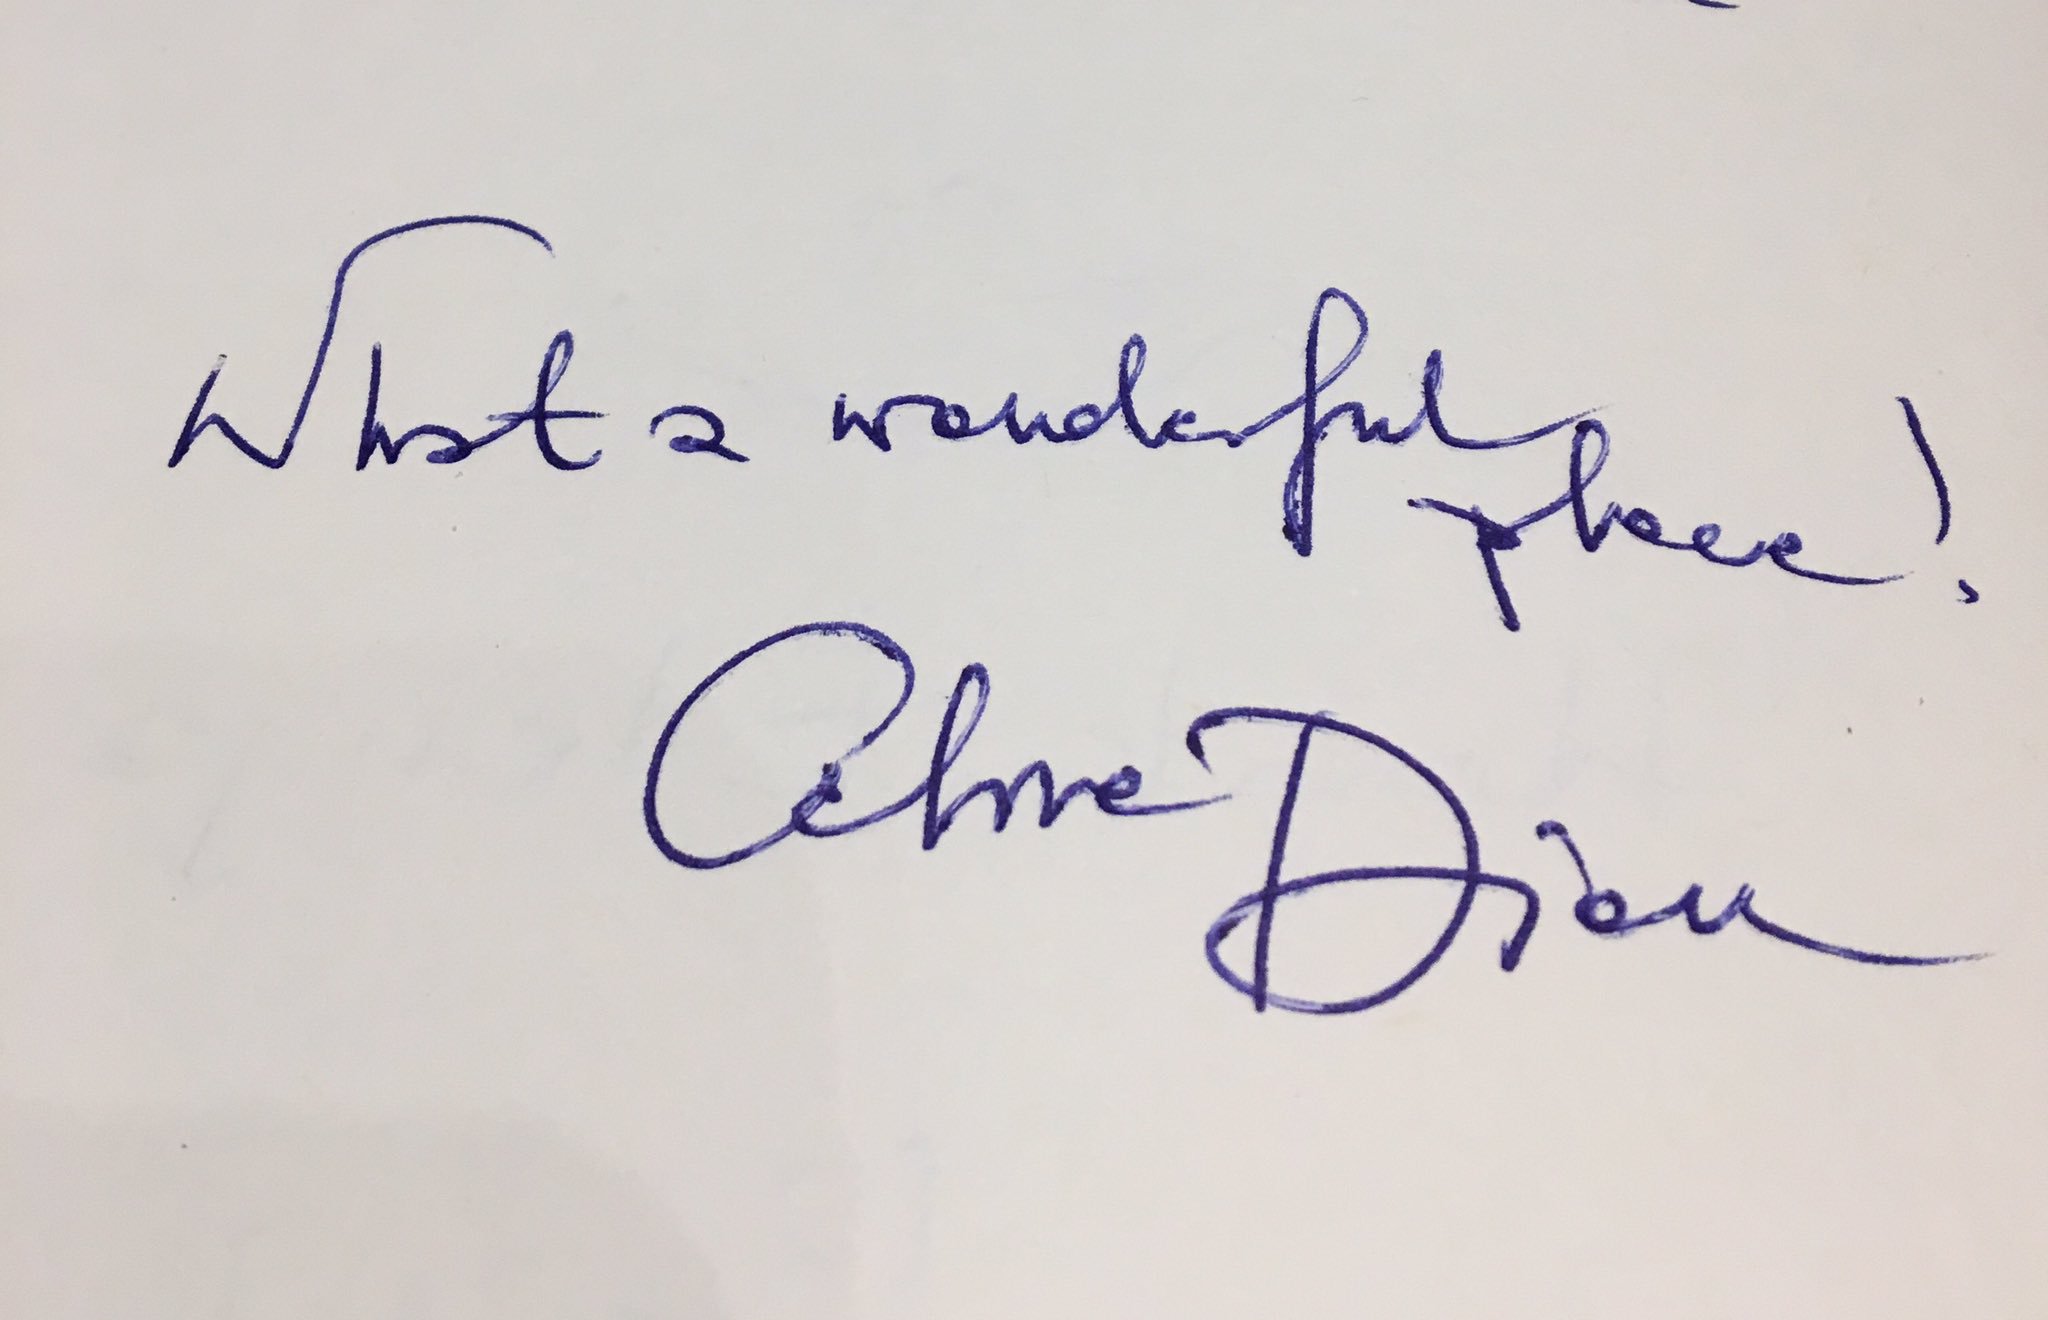 What a wonderful
place!
Celine Dion